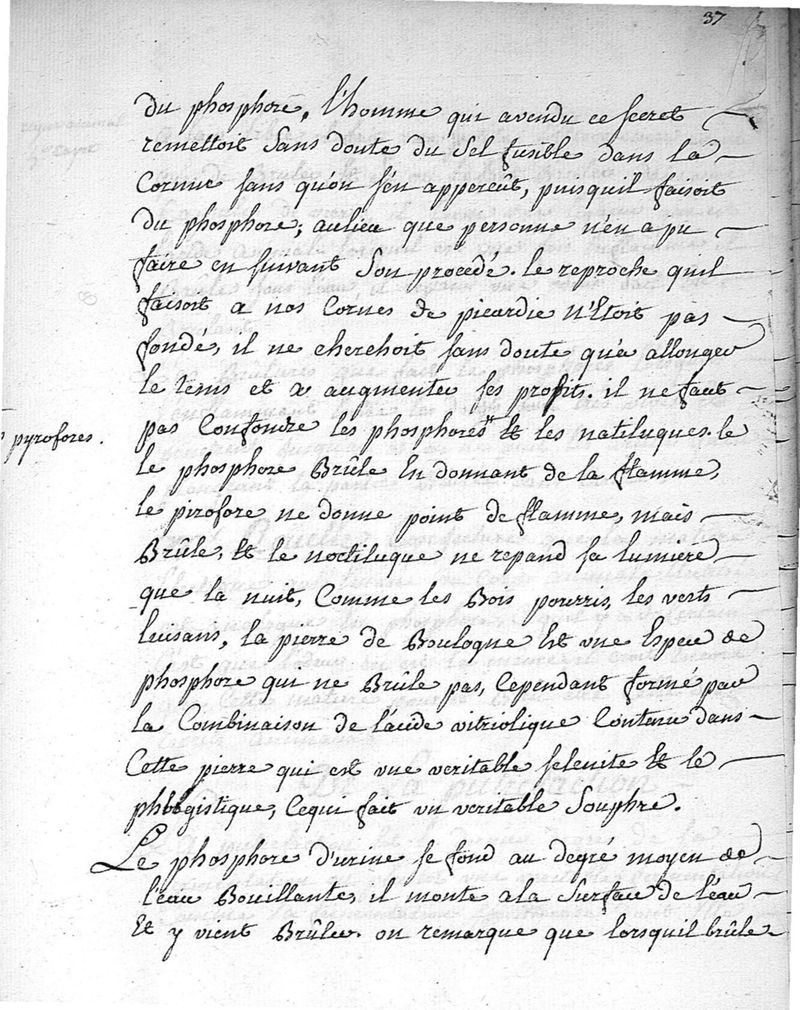 37
du phosphore, l'homme qui a vendu ce secret
remettoit sans doute du sel fusible dans la
Cornue sans qu'on s'en apperçût, puisquil faisoit
du phosphore; aulieu que personne n'en a pu
faire en suivant son procedé. le reproche quil
faisoit a nos Cornes de picardie n'Etoit pas
fondé, il ne cherchoit sans doute qu'a allonger
le tems et a augmenter ses profits. il ne faut
pas Confondre les phosphores # et les natiluques. le
pyrofores.
le phosphore Brûle En donnant de la flamme,
le pirofore ne donne point de flamme, mais
Brûle, et le noctiluque ne repand sa lumiere
que la nuit, Comme les Bois pourris, les verts
luisans, la pierre de Boulogne Est une Espece de
phosphore qui ne Brûle pas, Cependant formé par
la Combinaison de lacide vitriolique Contenu dans
Cette pierre qui est une veritable selenite et le
phlogistique, Cequi fait un veritable Souphre.
Le phosphore d'urine se fond au degré moyen de
l'eau Bouillante, il monte a la surface de l'eau
Et y vient Brûler. on remarque que lorsquil brûle